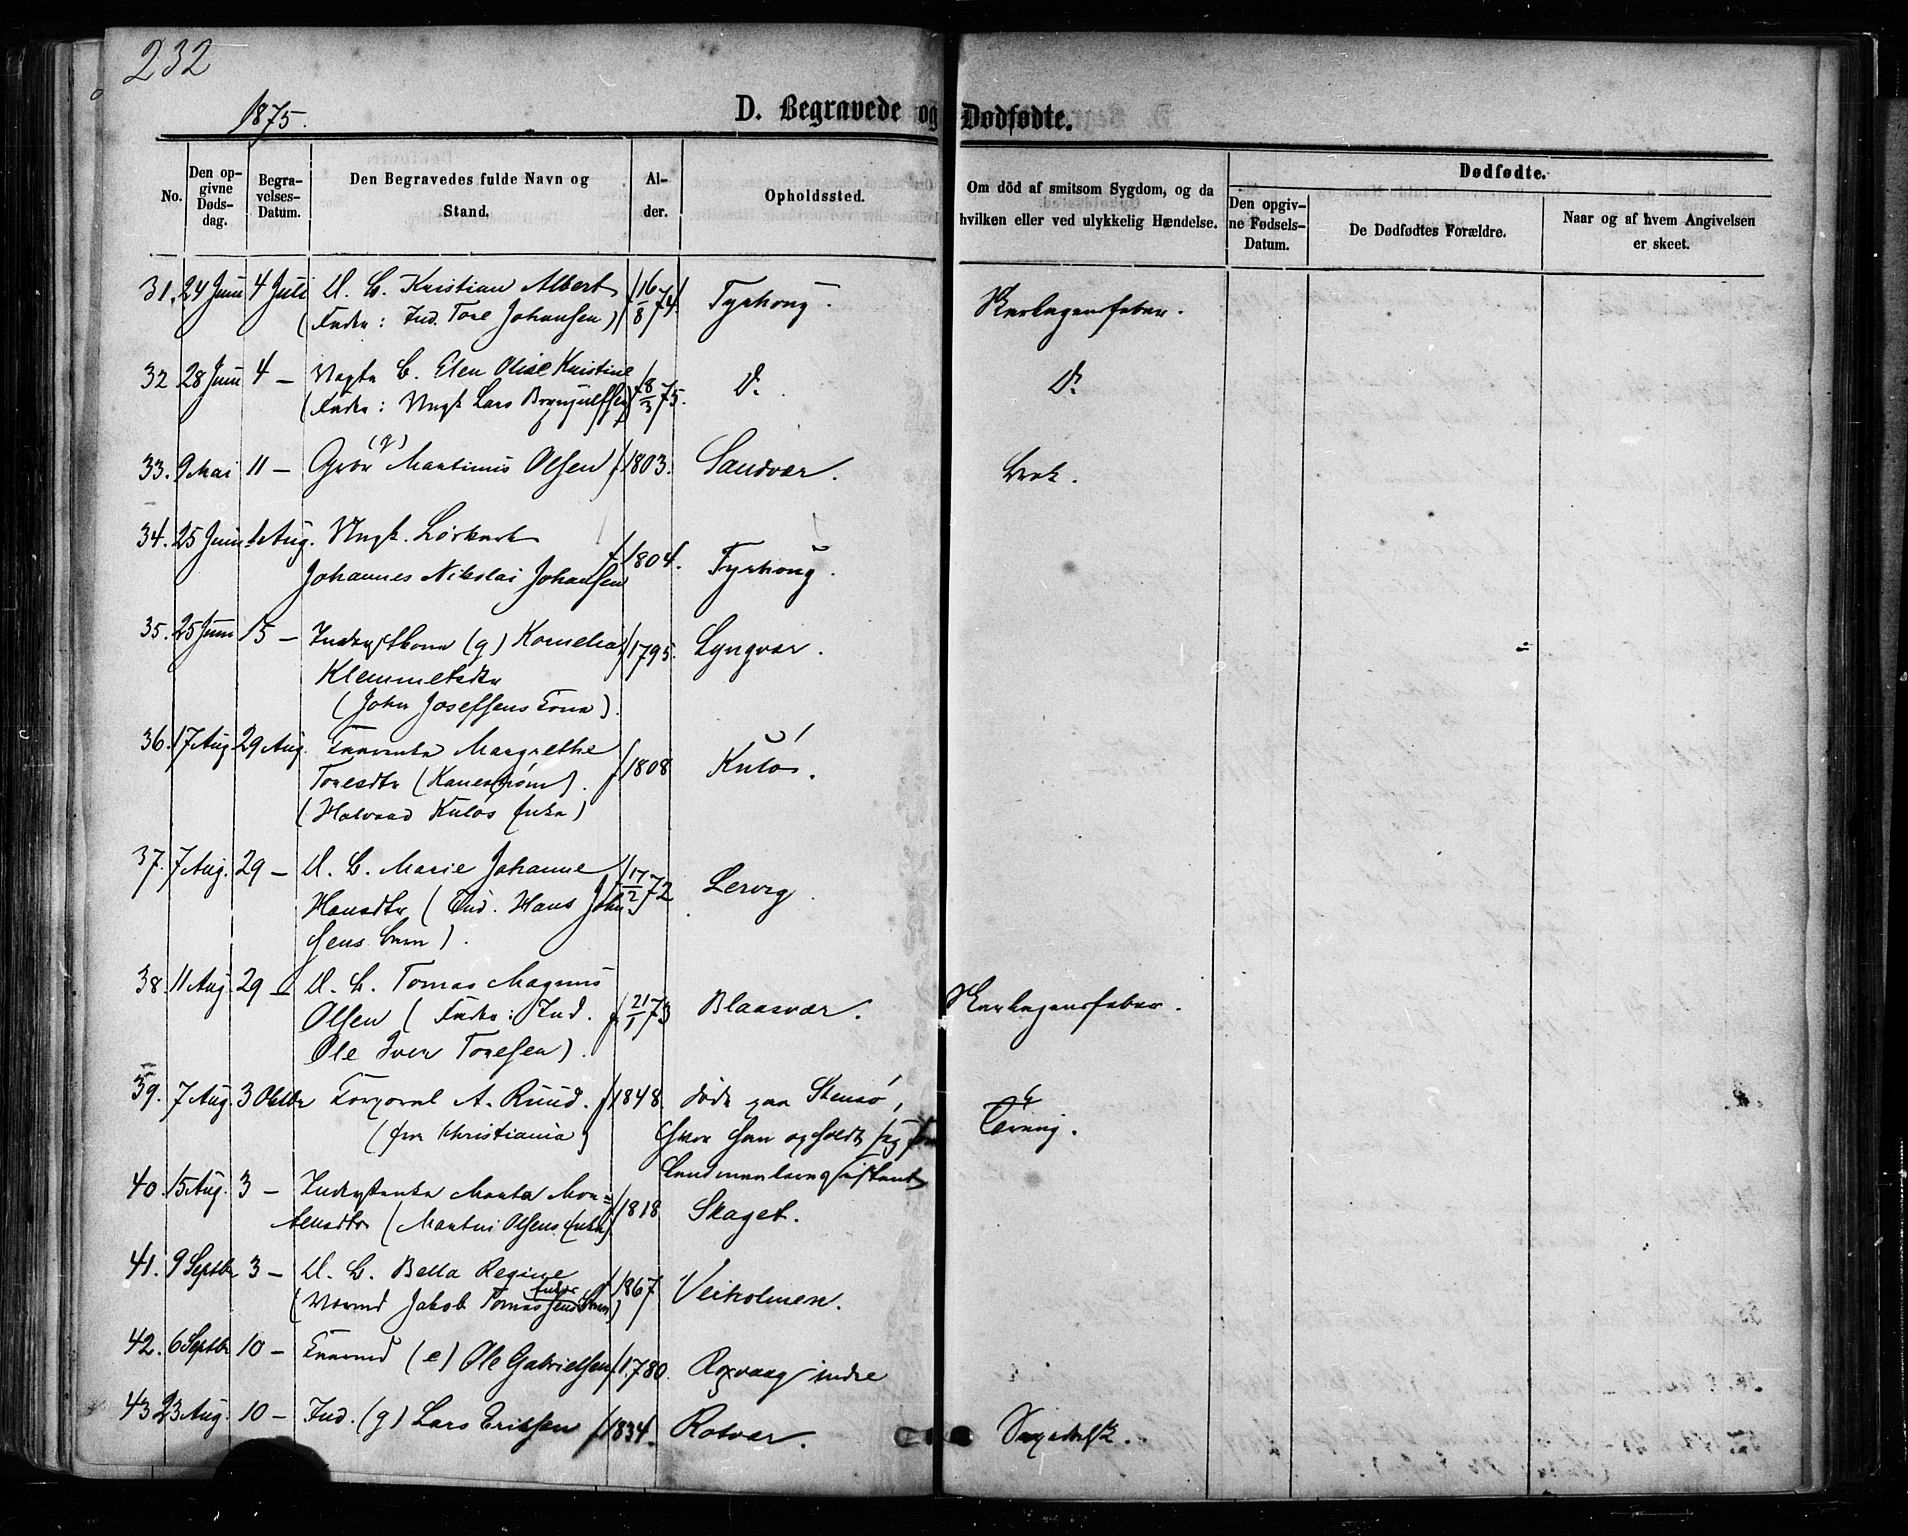 232
1875.
D. Begravede og Dødfødte.
No.
Den op-
givne
Døds-
dag.
Begra-
velses-
Datum.
Den Begravedes fulde Navn og
Stand.
Al-
der.
Opholdssted.
Om död af smitsom Sygdom, og da
hvilken eller ved ulykkelig Hændelse.
Dødfødte.
Den opgiv-
ne Fødsels-
Datum.
De Dødfødtes Forældre.
Naar og af hvem Angivelsen
er skeet.
31. 24 Juni 4 Juli U. B. Kristian Albert f 16/8 74. Tyrhoug. Skarlagensfeber.
(Fader: Ind. Tore Johansen)
32 28 Juni 4 — B. Elen Olise Kristine f 8/3 75. D. D.
(Fader: Ungk Lars
33. 9 Mai 11 — (g) Martinus Olsen f 1803. Sandvær. Brok.
34. 25 Juni 1 Aug. Ungk.
Johannes Nikolai Johansen f 1804. Tyrhoug.
35. 25 Juni 15 — (g) Kornelia f 1795. Lyngvær.
Klemmetsdtr
(John Josefsens Kone).
36. 17 Aug 29 Aug. Margrethe
Toresdtr f 1808 Kulø.
(Halvaad Kuløs Enke)
37. 7 Aug. 29 — U. B. Marie Johanne f 17/2 72 Lervig.
Hansdtr (Ind. Hans John
sens Barn).
38. 11 Aug. 29 — U. B. Tomas Magnus
Olsen (Fader: Ind. f 21/1 73 Blaasvær. Skarlagensfeber.
Ole Iver Toresen).
39. 7 Aug. 3 Oktbr A. Ruud. f 1848. døde paa Stensø, Tæring.
(fra Christiania) hvor han opholdt sig som
40. 15 Aug. 3 — Marta Mor=
tensdtr (Martin Olsens Enke). f 1818 Skaget.
41. 9 Septbr 3 — U. B. Bella Regine f 1867 Veiholmen.
Jakob Tomassens Barn)
42. 6 Septbr 10 — (e) Ole Gabrielsen f 1780. Roxvaag indre
43 23 Aug. 10 — Ind. (g) Lars Eriksen f 1834. Rotvær.